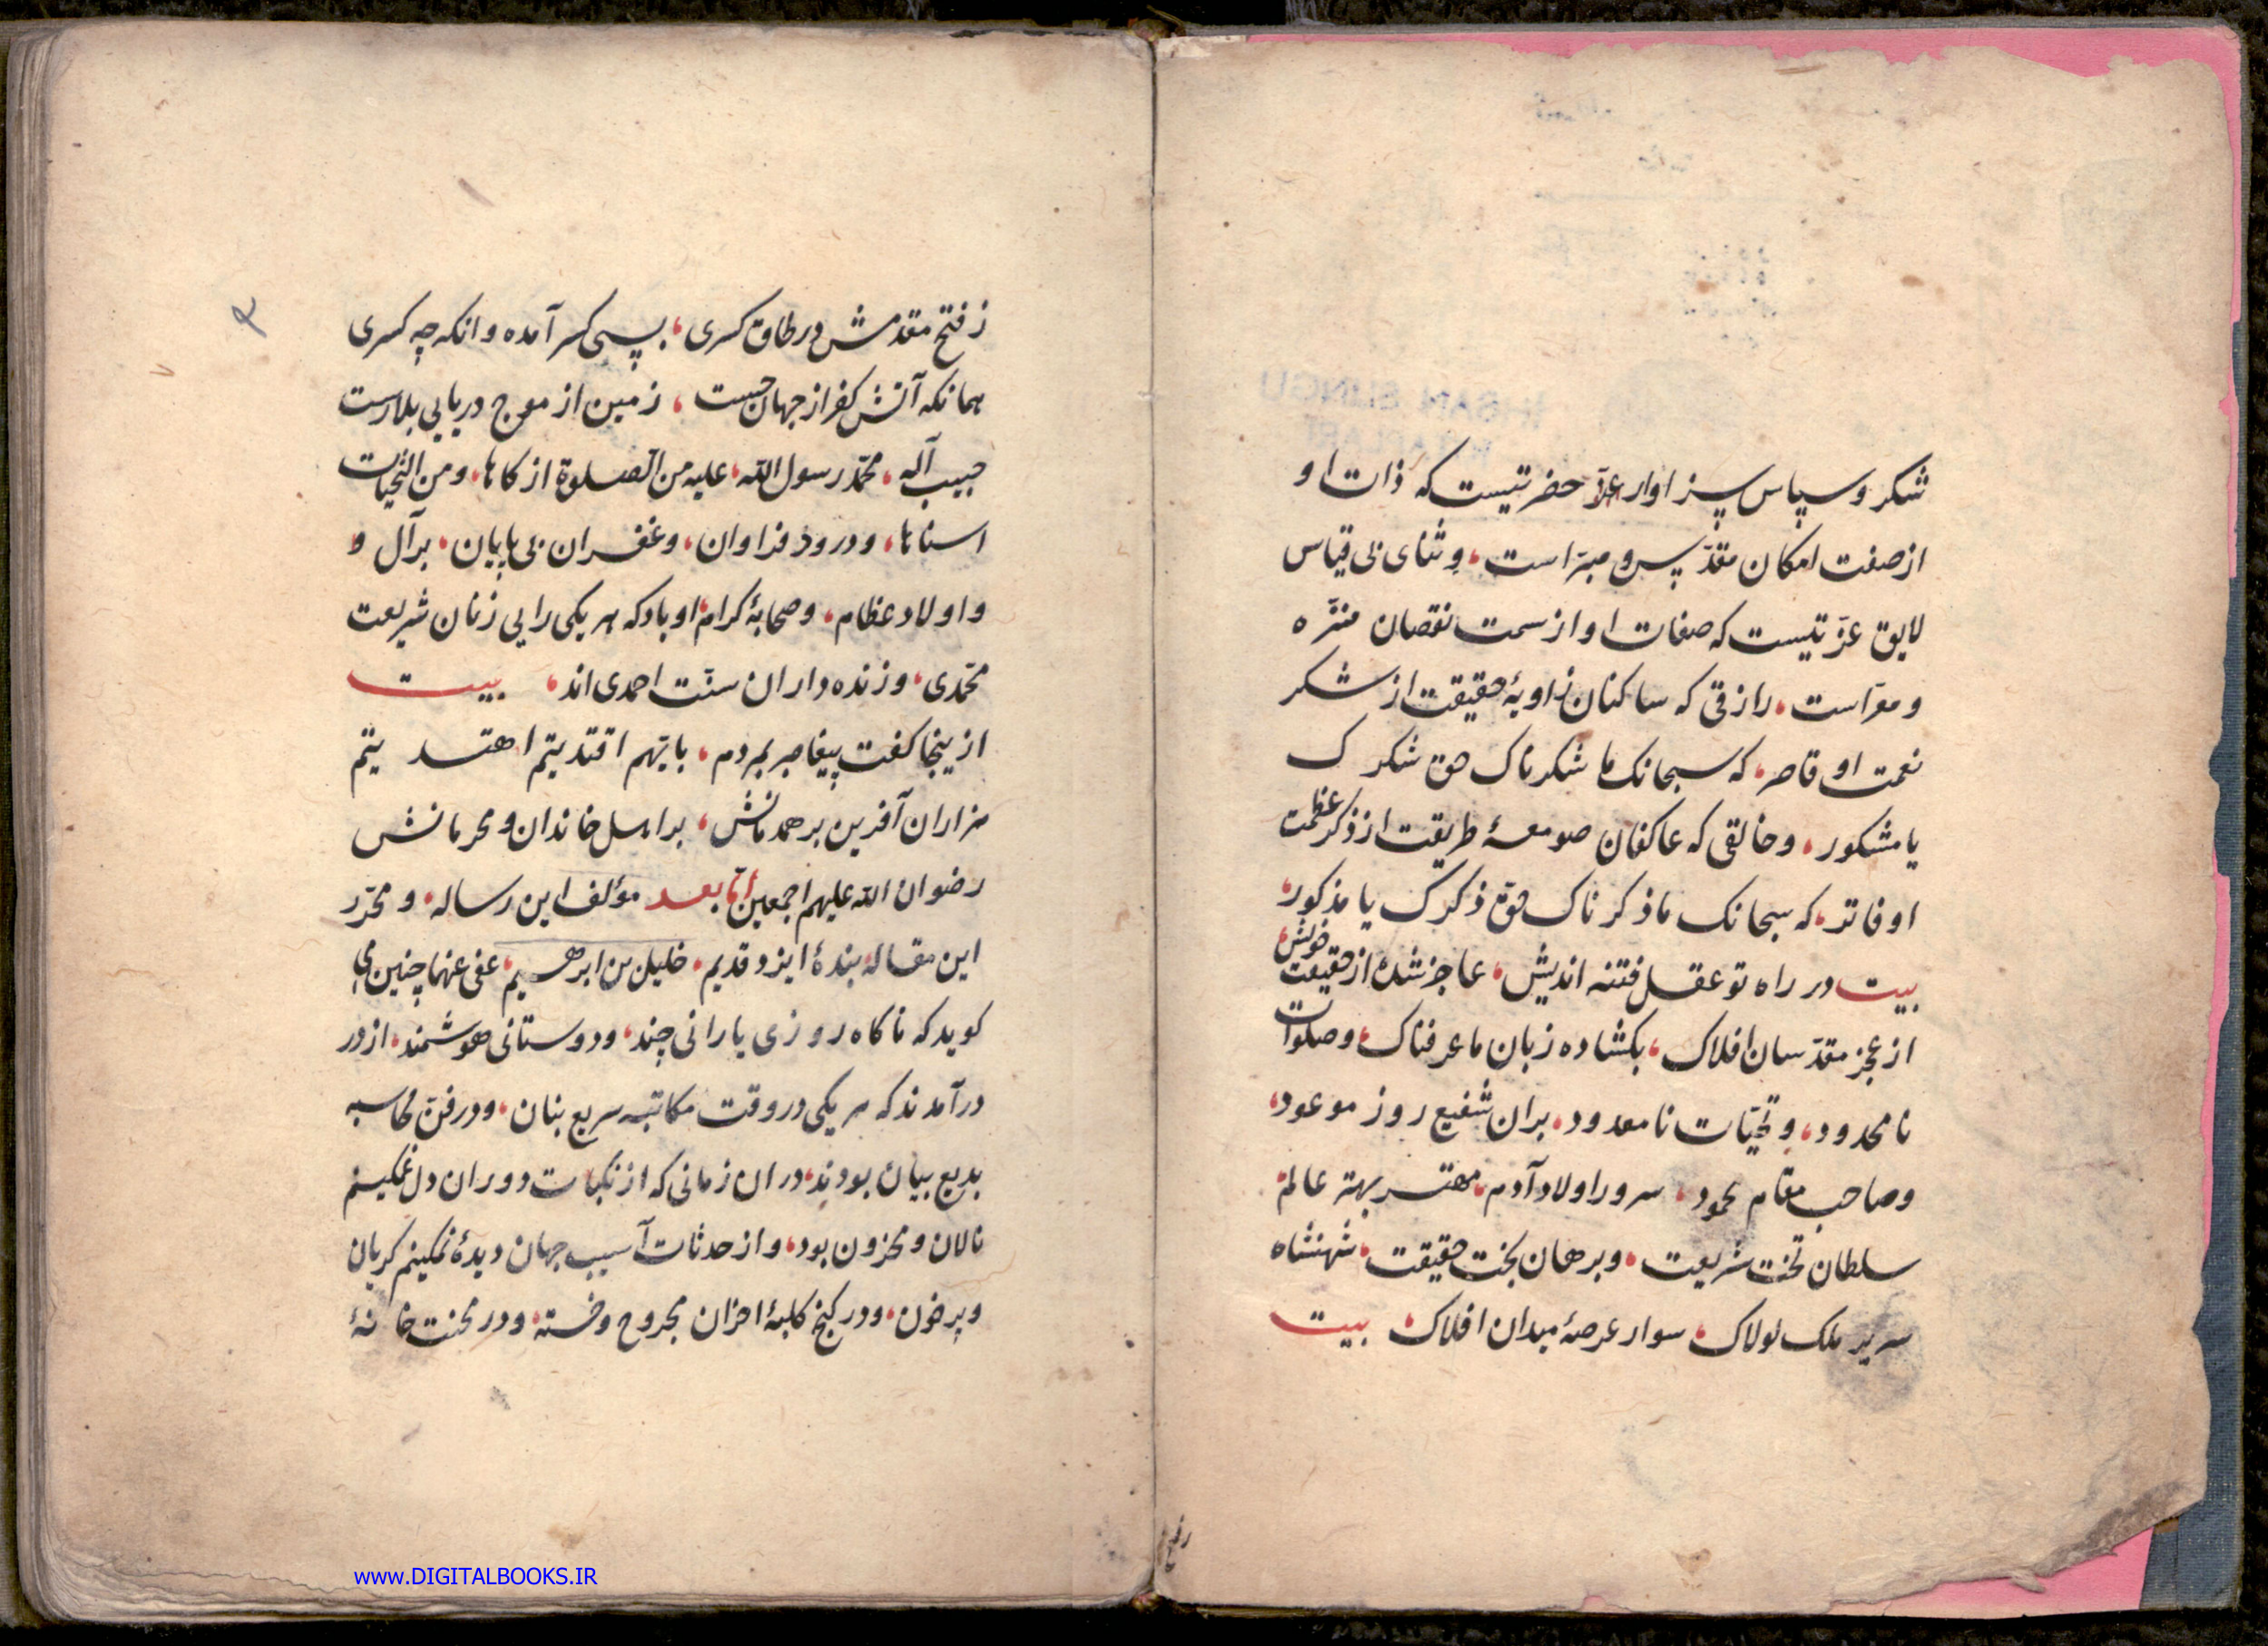 شکر و سپاس سزاوار عزّ حضرتیست که ذات او
از صفت امکان مقدّس و مبرّاست، و ثنای بی قیاس
لایق عزّتیست که صفات او از سمت نقصان منزّه
و معرّاست، رازقی که ساکنان زاویهٔ حقیقت از شکر
نعمت او قاصر، که سبحانک ما شکرناک حق شکرک
یا مشکور، و خالقی که عاکفان صومعهٔ طریقت از ذکر عظمت
او فاتر، که سبحانک ما ذکرناک حق ذکرک یا مذکور،
بیت در راه تو عقل فتنه اندیش، عاجز شده از حقیقت خویش،
از عجز مقدّسان افلاک، بکشاده زبان ما عرفناک، و صلوات
نامحدود، و تحیّات نامعدود، بران شفیع روز موعود،
و صاحب مقام محمود، سرور اولاد آدم، مهتر بهتر عالم،
سلطان تخت شریعت، و برهان بخت حقیقت، شهنشاه
سریر ملک لولاک، سوار عرصهٔ میدان افلاک، بیت
زفتح
۲
زفتح مقدمش در طاق کسری، بسی کسر آمده وانکه چه کسری
همانکه آتش کفر از جهان جست، زمین از موج دریایی بلا رست
حبیب آله، محمّد رسول الله، علیه من الصلوة ازکاها، و من التحیات
اسناها، و درود فراوان، و غفران بی پایان، بر آل و
و اولاد عظام، و صحابهٔ کرام او باد که هر یکی رایی زنان شریعت
محمّدی، و زنده داران سنّت احمدی اند، بیت
ازینجا کفت پیغامبر بمردم، بایّهم اقتدیتم اهتدیتم
هزاران آفرین بر همدمانش، بر اهل خاندان و محرمانش
رضوان الله علیهم اجمعین امّا بعد مؤلف این رساله، و محرّر
این مقاله بندهٔ ایزد قدیم، خلیل بن ابرهیم، عفی عنهما چنین می
کوید که ناکاه روزی یارانی چند، و دوستانی هوشمند، از در
درآمدند که هر یکی در وقت مکاتبه سریع بنان، و در فنّ محاسبه
بدیع بیان بودند، دران زمانی که از نکبات دوران دل غمکینم
نالان و محزون بود، و از حدثات آسیب جهان دیدهٔ نمکینم کریان
و پر خون، و در کنج کلبهٔ احزان مجروح و خسته، و در محنت خانهٔ
www.DIGITALBOOKS.IR